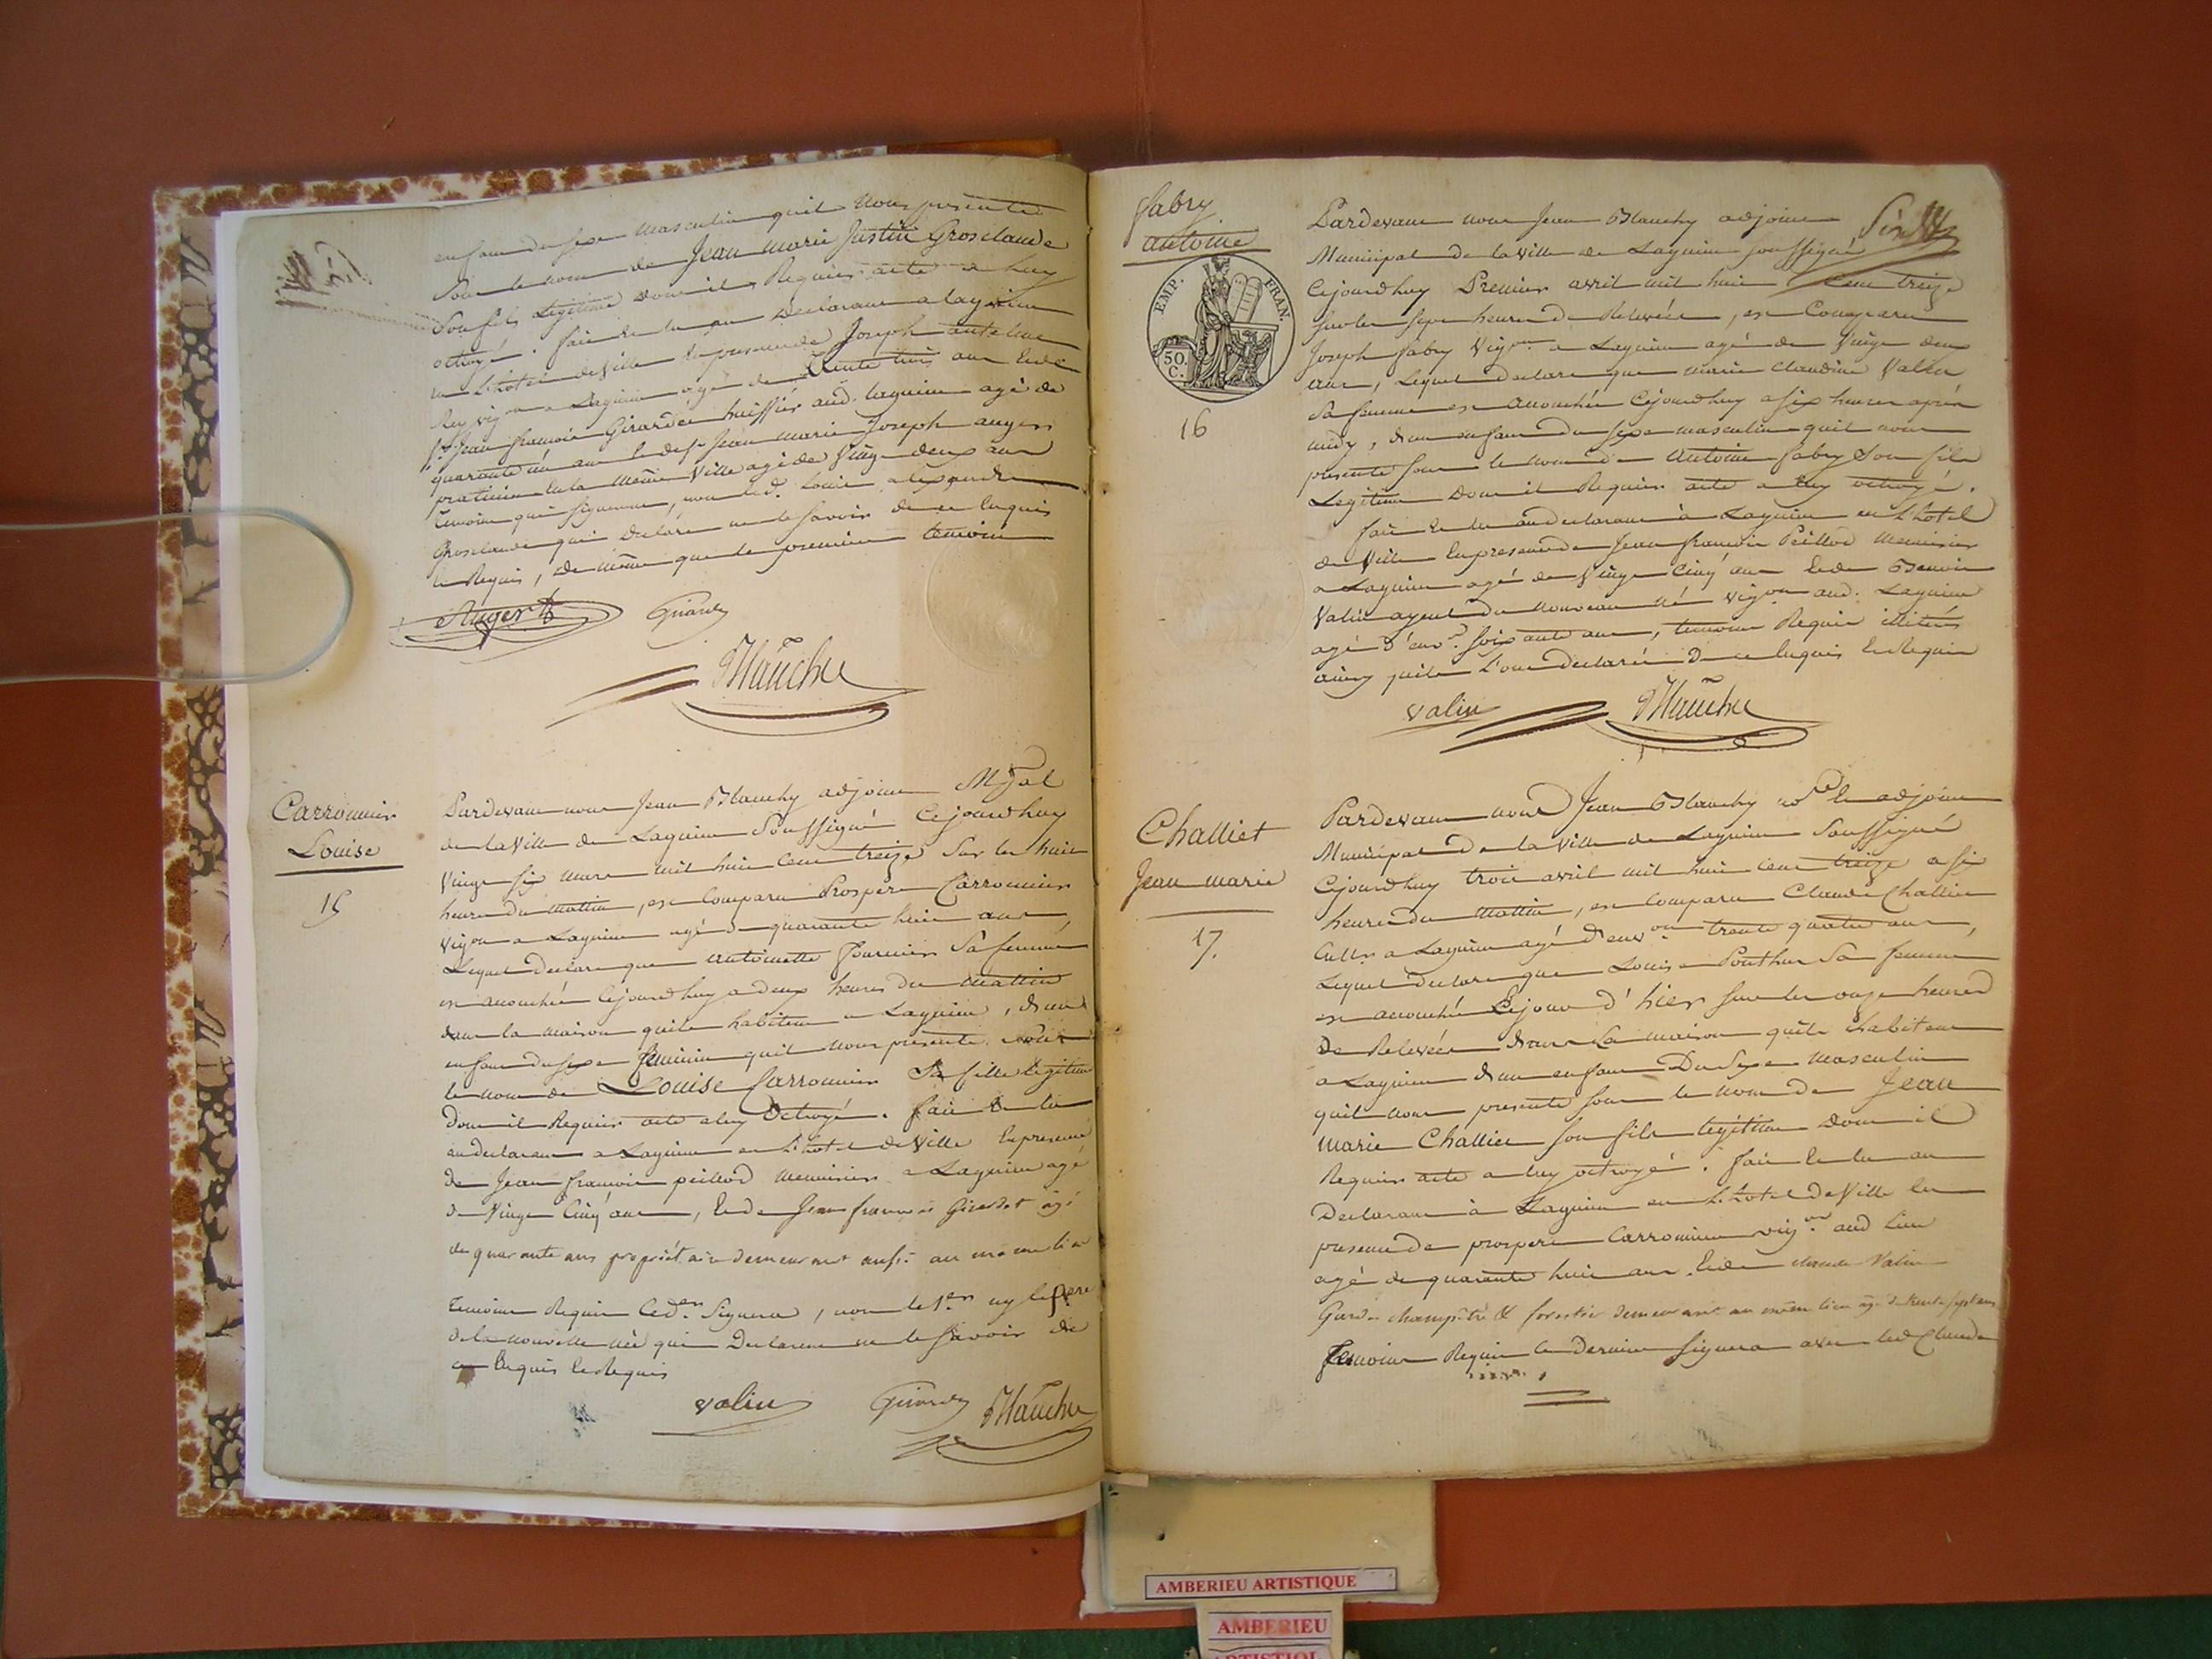 enfant du sexe masculin quil nous présente
Sous le nom de Jean Marie Justin Grosclaude
Son fils Légitime dont il Requier acte a luy
octroyé. fait et lu au Declarant a lagnieu
en L'hotel de Ville En présence de Joseph antelme
Rey vigon a Lagnieu agé de Trente trois ans Et de
Sr. Jean francois Girardet huissier aud. lagnieu agé de
quarante un ans Et de Sr Jean Marie Joseph augers
praticien En la Même Ville agé de Vingt deux ans
Temoins qui signeront, non led. Louis alexandre
Grosclaude qui Declare ne le Savoir de ce Enquis
et Requis, de même que le premier temoin
Auger
Girardet
Blanchy
Carronnier
Louise
15
Pardevant nous Jean Blanchy adjoint Mpal
de la Ville de Lagnieu Soussigné Cejourdhuy
Vingt six mars mil huit Cent treize Sur les huit
heures du Mattin, est Comparu Prospère Carronnier
Vigon a Lagnieu agé de quarante huit ans
Lequel Declare que Antoinette Fournier Sa femme
est accouchée Cejourdhuy a deux heures du Mattin
dans la maison quils habitent a Lagnieu, d'un
enfant du sexe feminin quil Nous présente sous
le nom de Louise Carronnier Sa fille légitime
dont il Requier acte a luy Octroyé. fait Et lu
au declarant a Lagnieu en L'hotel de Ville En presence
de Jean francois peillod Menuisier a Lagnieu agé
de Vingt Cinq ans, Et de Jean francois Girardet agé
de quarante ans propriétaire demeurant aussi au même lieu
Temoins Requis Le der. Signera, non le 1er ny le pere
de la nouvelle née qui Declarent ne le Savoir de
ce Enquis Et Requis
valin
Girardet
Blanchy
fabry
antoine
EMP. FRAN.
50
C.
16
Pardevant nous Jean Blanchy adjoint
Municipal de la Ville de Lagnieu soussigné
Cejourdhuy Premier avril mil huit Cent treize
sur les sept heures de Relevée, est Comparu
Joseph fabry Vigon a Lagnieu agé de Vingt deux
ans, Lequel declare que marie Claudine Valin
Sa femme est accouchée Cejourdhuy a six heures après
midy, d'un enfant du sexe masculin quil nous
presente sous le nom de Antoine fabry Son fils
Legitime Dont il Requier acte a luy octroyé.
fait Et lu au declarant à Lagnieu en L'hotel
de Ville En presence de Jean francois Peillod Menuisier
a Lagnieu agé de Vingt Cinq ans Et de Benoit
Valin ayeul du Nouveau né vigon aud. Lagnieu
agé d'env.on soixante ans, temoins Requis illitérés
ainsy quils L'ont declaré de ce Enquis Et Requis
valin
Blanchy
Challiet
Jean marie
17.
Pardevant nous Jean Blanchy adjoint
Municipal de la Ville de Lagnieu Soussigné
Cejourdhuy trois avril mil huit cent treize a six
heures du Mattin, est Comparu Claude Challiet
Cultr a Lagnieu agé d'environ trente quatre ans,
Lequel declare que Louise Ponthus Sa femme
est accouchée Le jour d'hier sur les onze heures
De Relevée dans La maison quils habitent
a Lagnieu d'un enfant Du Sexe Masculin
quil nous presente sous le nom de Jean
Marie Challiet son fils légitime dont il
Requier acte a luy octroyé. fait Et lu au
Declarant à Lagnieu en L'hotel de Ville En
presence de prosper Carronnier vigon aud Lieu
agé de quarante huit ans Et de claude Valin
Garde champêtre & forestier demeurant au même lieu agé de trente sept ans
Temoins Requis le Dernier signera avec led Claude
AMBERIEU ARTISTIQUE
AMBERIEU
ARTISTIQUE